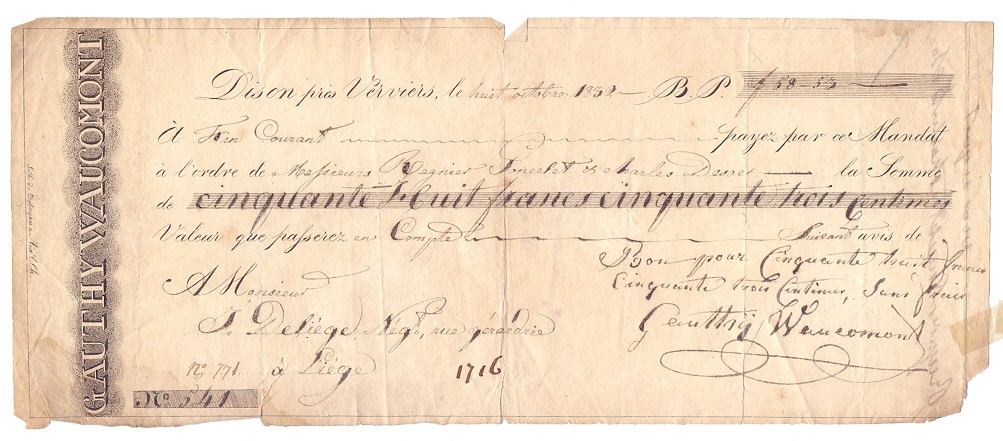 GAUTHY WAUCOMONT
Dison près Verviers, le huit octobre 1839 B.P. f 58-53
À Fin Courant payez par ce Mandat
à l'ordre de Messieurs Regnier Poncelet & Charles Desses la Somme
de cinquante Huit francs cinquante trois Centimes
Valeur que passerez en Compte Suivant avis de
Bon pour Cinquante huit francs
Cinquante trois Centimes, Sans frais
A Monsieur
J. Deliége, Negt, rue gérardrie
Gauthÿ Waucomont
No. 771 à Liége 1716
No 541